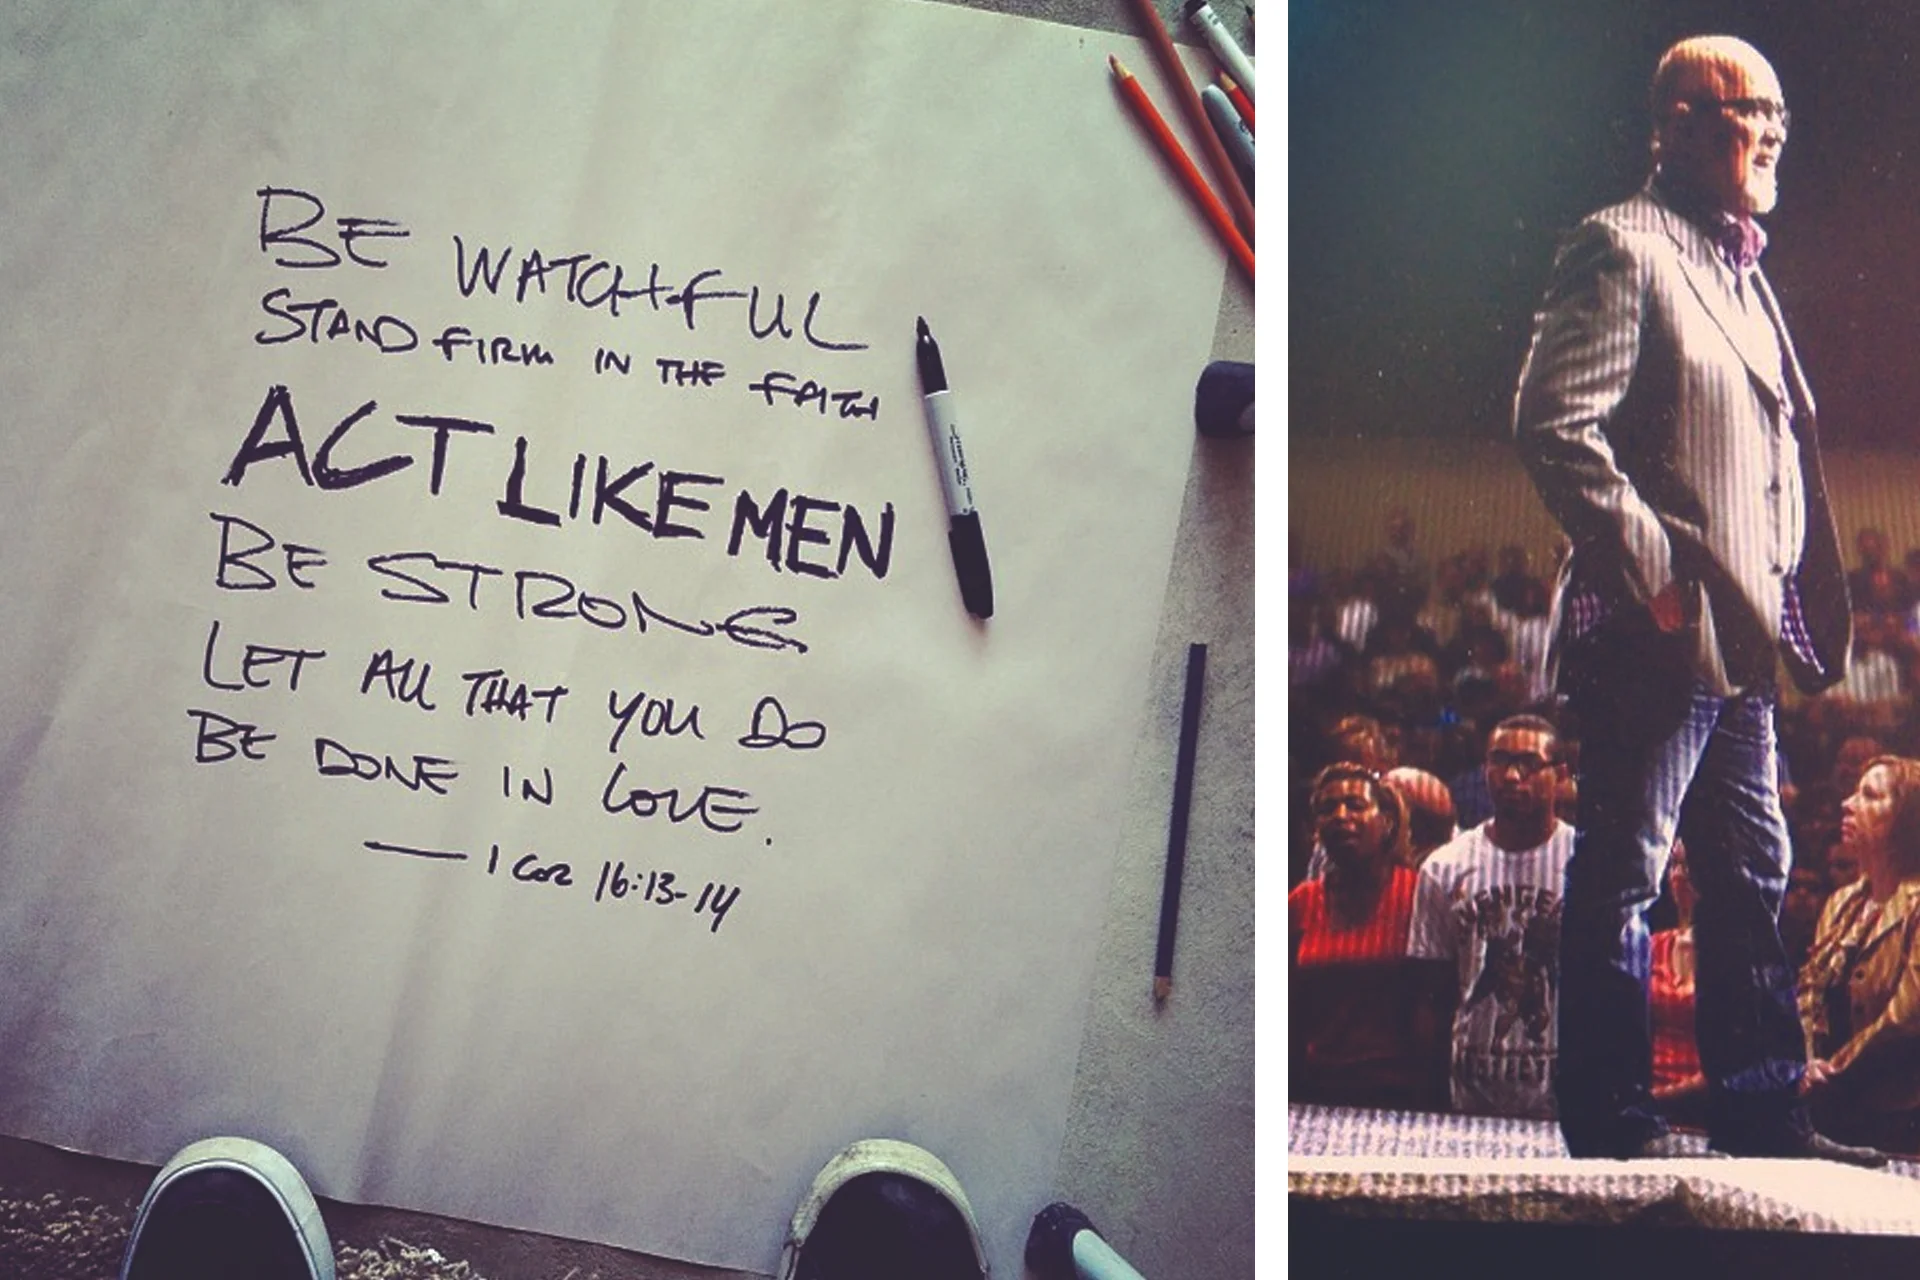 BE WATCHFUL
STAND FIRM IN THE FAITH
ACT LIKE MEN
BE STRONG
LET ALL THAT YOU DO
BE DONE IN LOVE.
— 1 COR 16:13-14